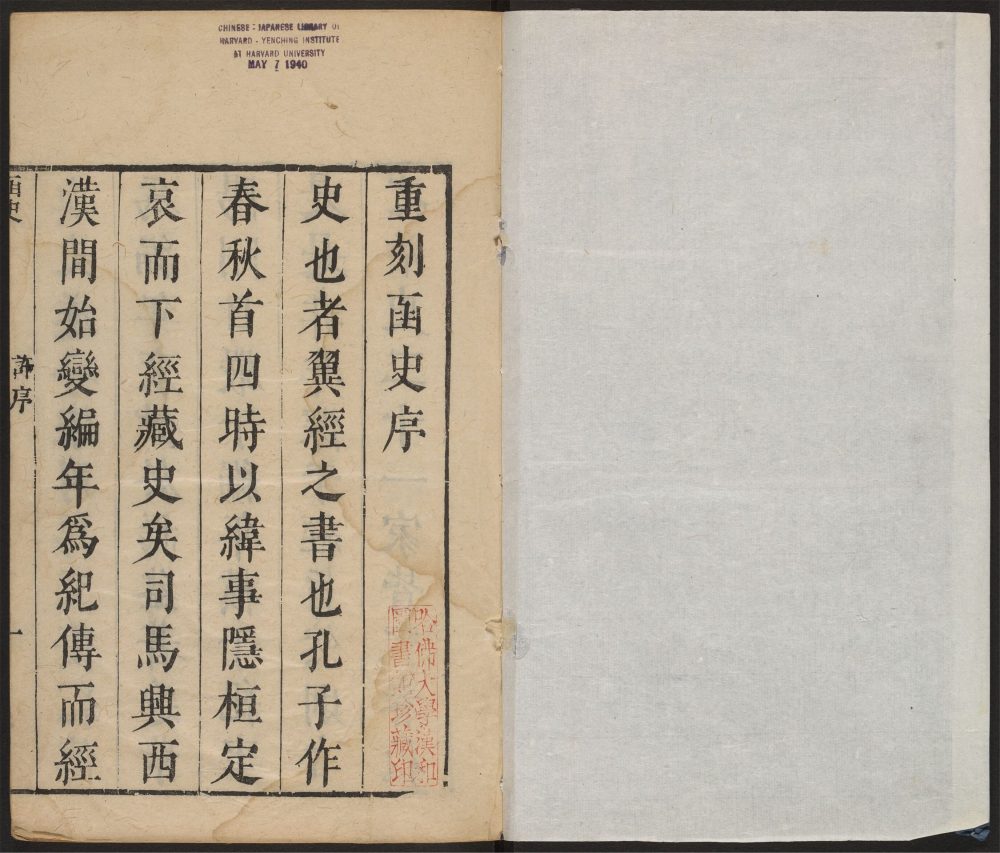 CHINESE - JAPANESE LIBRARY OF
HARVARD - YENCHING INSTITUTE
AT HARVARD UNIVERSITY
MAY 7 1940
重刻函史序
史也者翼經之書也孔子作
春秋首四時以緯事隱桓定
哀而下經藏史矣司馬興西
漢間始變編年爲紀傳而經
函史
許序
一
哈佛大學漢和
圖書館珍藏印